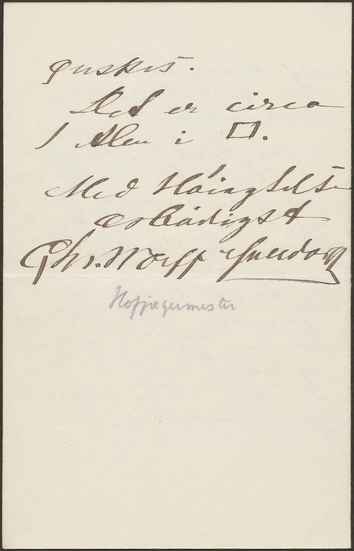 ønskes.
Det er circa
1 Alen i □.
Med Høiagtelse
ærbødigst
Chr. Wolff
Hofjægermester